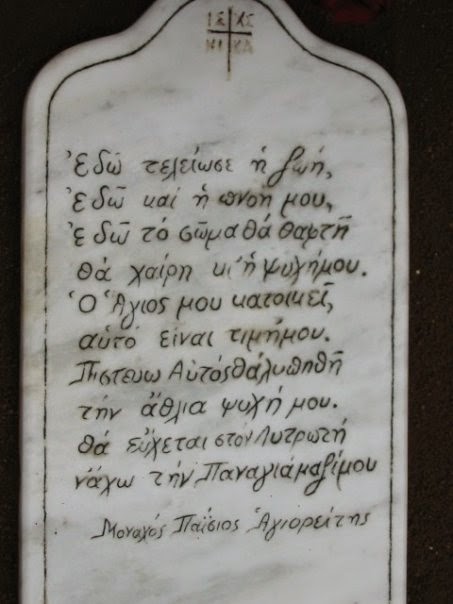 ΙΣ ΧΣ
ΝΙ ΚΑ
Ἐδῶ τελείωσε ἡ ζωή,
Ἐδῶ καί ἡ πνοή μου,
Ἐδῶ τό σῶμα θά θαφτῆ
θά χαίρη κι' ἡ ψυχή μου.
Ὁ Ἅγιος μου κατοικεῖ,
αὐτό εἶναι τιμή μου.
Πιστεύω Αὐτός θά λυπηθῆ
τήν ἄθλια ψυχή μου.
θά εὔχεται στόν Λυτρωτή
νἄχω τήν Παναγιά μαζί μου
Μοναχός Παΐσιος Ἁγιορείτης